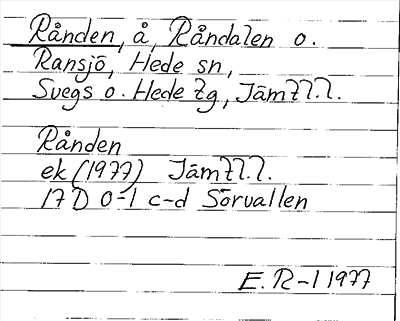 Rånden, å, Råndalen o.
Ransjö, Hede sn,
Svegs o. Hede tg, Jämtl.l.
Rånden
ek (1977) Jämtl.l.
17 D 0-1 c-d Sörvallen
E. R-l 1977